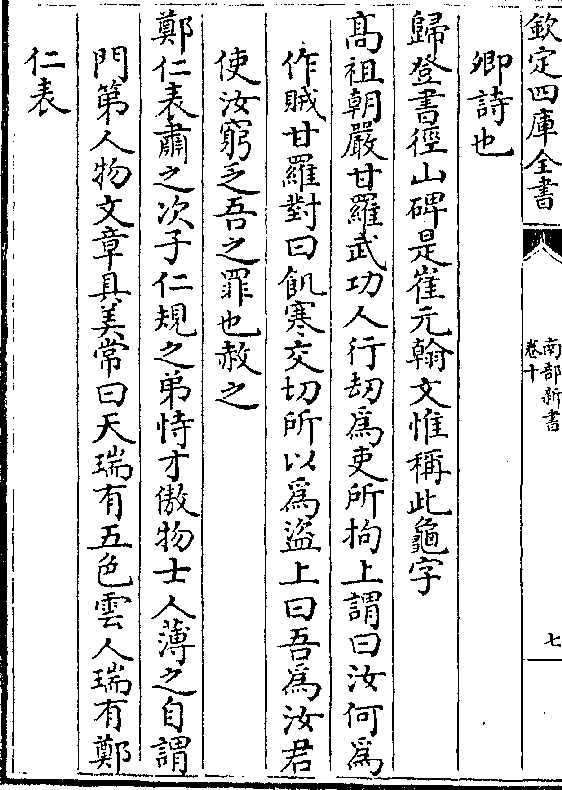 欽定四庫全書
南部新書
卷十
七
卿詩也
歸登書徑山碑是崔元翰文惟稱此龜字
髙祖朝嚴甘羅武功人行刼爲吏所拘上謂曰汝何爲
作賊甘羅對曰飢寒交切所以爲盜上曰吾爲汝君
使汝窮乏吾之罪也赦之
鄭仁表肅之次子仁規之弟恃才傲物士人薄之自謂
門第人物文章具美常曰天瑞有五色雲人瑞有鄭
仁表